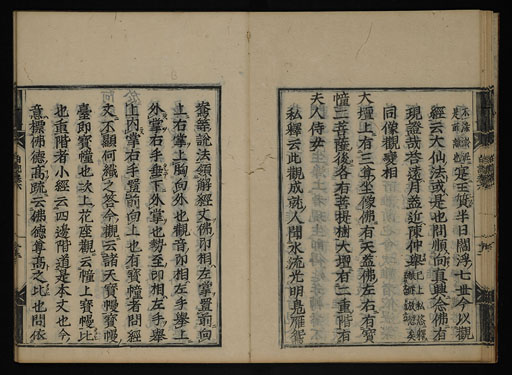 經云大仙法或是也問願向直與念佛有
現證哉答遠月蓋近陳仲舉
同像觀變相
大壇上有三尊坐像佛有天蓋佛左右有寶
幢二菩薩後各有菩提樹大壇有二重階有
夫人侍女
私釋云此觀成就人聞水流光明鳧雁
鴦等說法須解經文佛印相左掌置前向
上右掌上胸向外也觀音印相左手舉上
外掌右手垂下外掌也勢至印相右手舉
上內掌右手置前向上也有寶幢者問經
文不顯何織之答今觀云諸天寶幔寶幔
臺即寶幢也次上花座觀云幢上寶幔比
也重階者小經云四邊階道是本丈也今
意擬佛德高疏云佛德尊高之比也問依